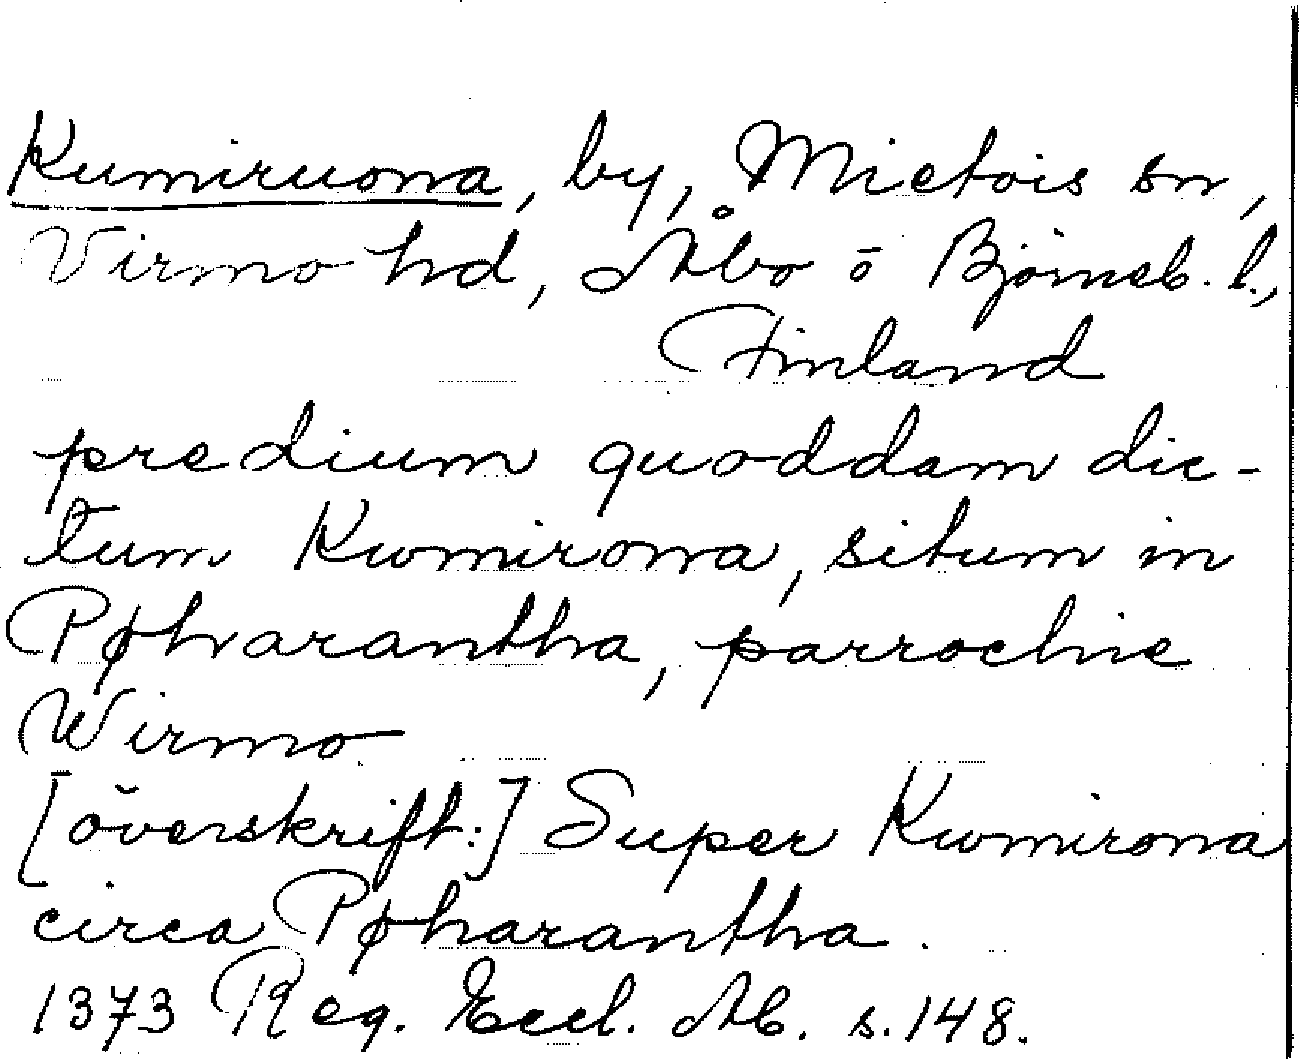 Kumiruona, by, Mietois sn,
Virmo hd, Åbo o Björneb. l.,
Finland
predium quoddam dic-
tum Kwmirona, situm in
Pøharantha, parrochie
Wirmo
[överskrift:] Super Kwmirona
circa Pøharantha.
1373 Reg. Eccl. Ab. s. 148.